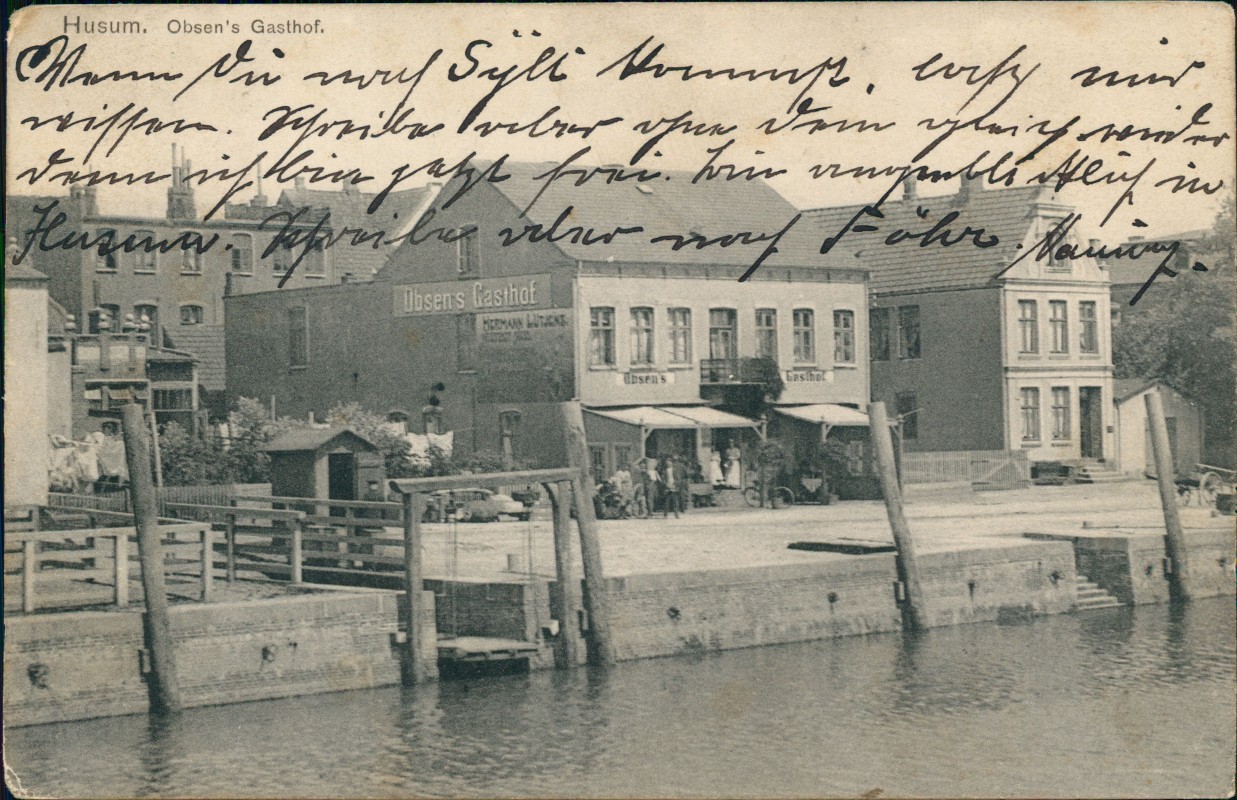 Husum. Obsen's Gasthof.
Wenn Du nach Sÿlt kommst, laß mir
wissen. Schreibe aber ohne dem gleich wieder
denn ich bin jetzt frei. Bin augenblicklich in
Husum. Schreibe aber nach Föhr.
Obsen's Gasthof
HERMANN LÜTJENS.
Obsen's Gasthof